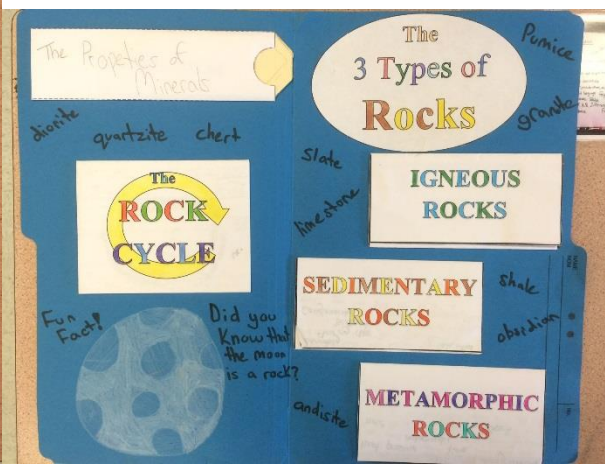 The Propeties of
Minerals
diorite
quartzite
chert
The
ROCK
CYCLE
Fun
Fact!
Did you
Know that
the moon
is a rock?
The
3 Types of
Rocks
Pumice
granite
slate
limestone
IGNEOUS
ROCKS
SEDIMENTARY
ROCKS
shale
obsidian
andisite
METAMORPHIC
ROCKS